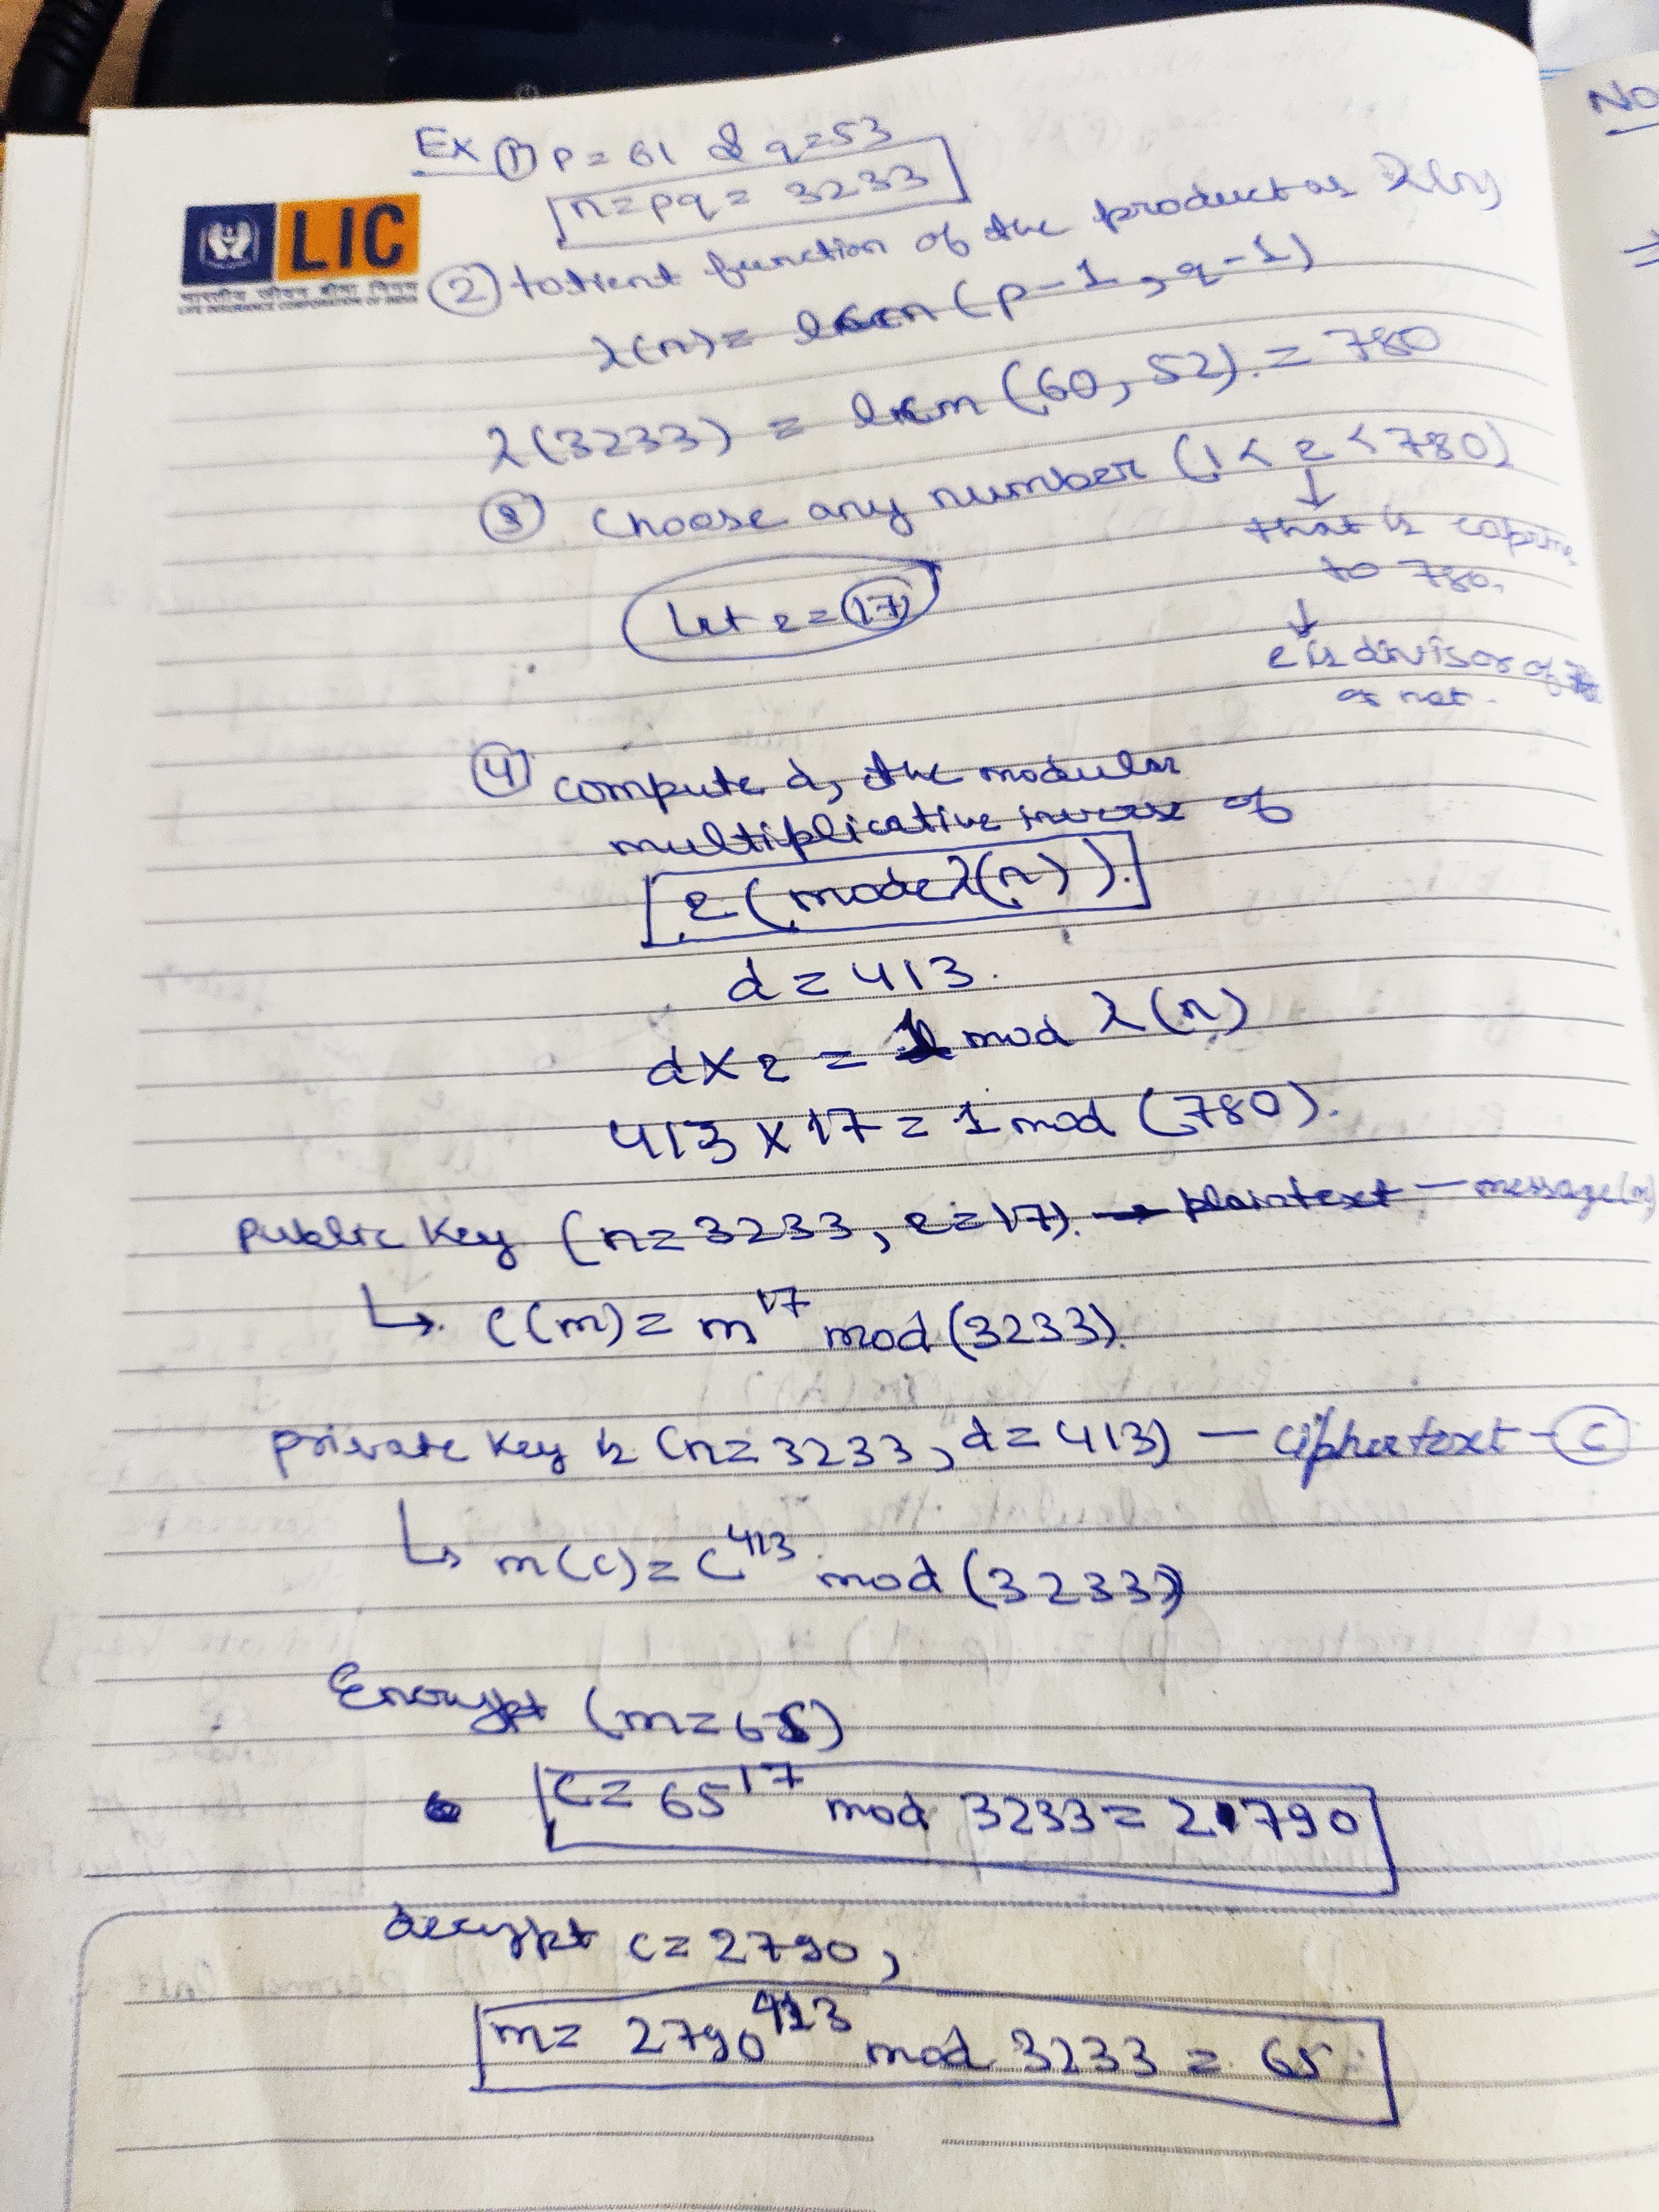 Ex ① p = 61 & q = 53
n = pq = 3233
LIC
भारतीय जीवन बीमा निगम
LIFE INSURANCE CORPORATION OF INDIA
② totient function of the product as λ(n)
λ(n) = lcm (p-1, q-1)
λ(3233) = lcm (60, 52) = 780
③ Choose any number (1 < e < 780)
↓
that is coprime
to 780.
↓
e is divisor of
or not.
Let e = 17
④ compute d, the modular
multiplicative inverse of
e (mode λ(n)).
d = 413.
d × e = 1 mod λ(n)
413 × 17 = 1 mod (780).
public key (n = 3233, e = 17). → plaintext - message(m)
↳ c(m) = m^17 mod (3233).
private key is (n = 3233, d = 413) - ciphertext - c
↳ m(c) = c^413 mod (3233)
Encrypt (m = 65)
c = 65^17 mod 3233 = 2790
decrypt c = 2790,
m = 2790^413 mod 3233 = 65
No
⇒